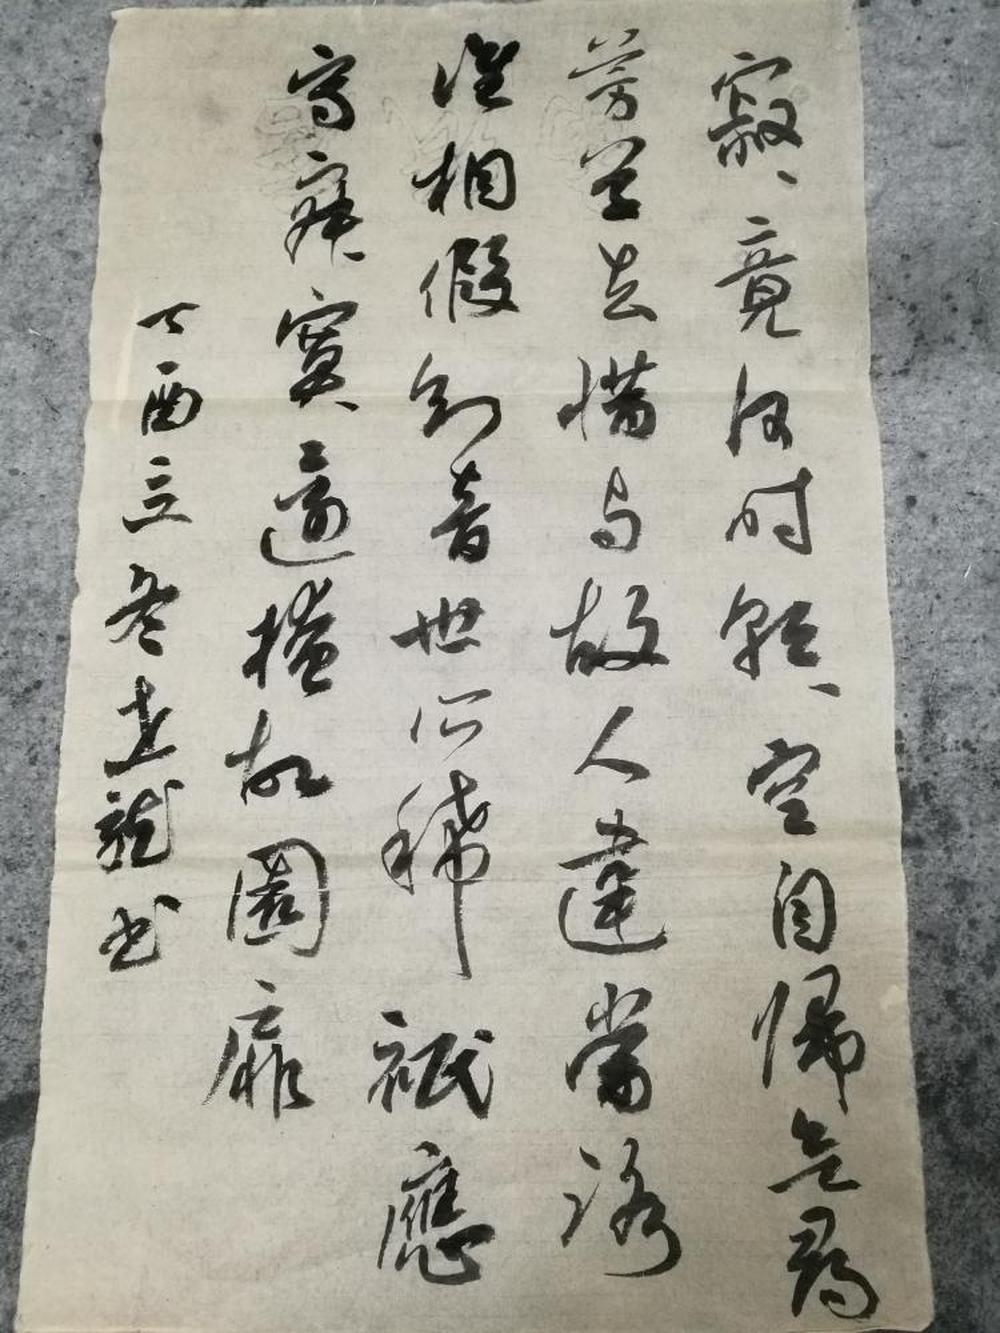 寂、竟何时朝、空自歸尋
芳草去惜与故人違當路
谁相假知音世所稀祇應
守寂寞還掩故園扉
丁酉立冬龍书